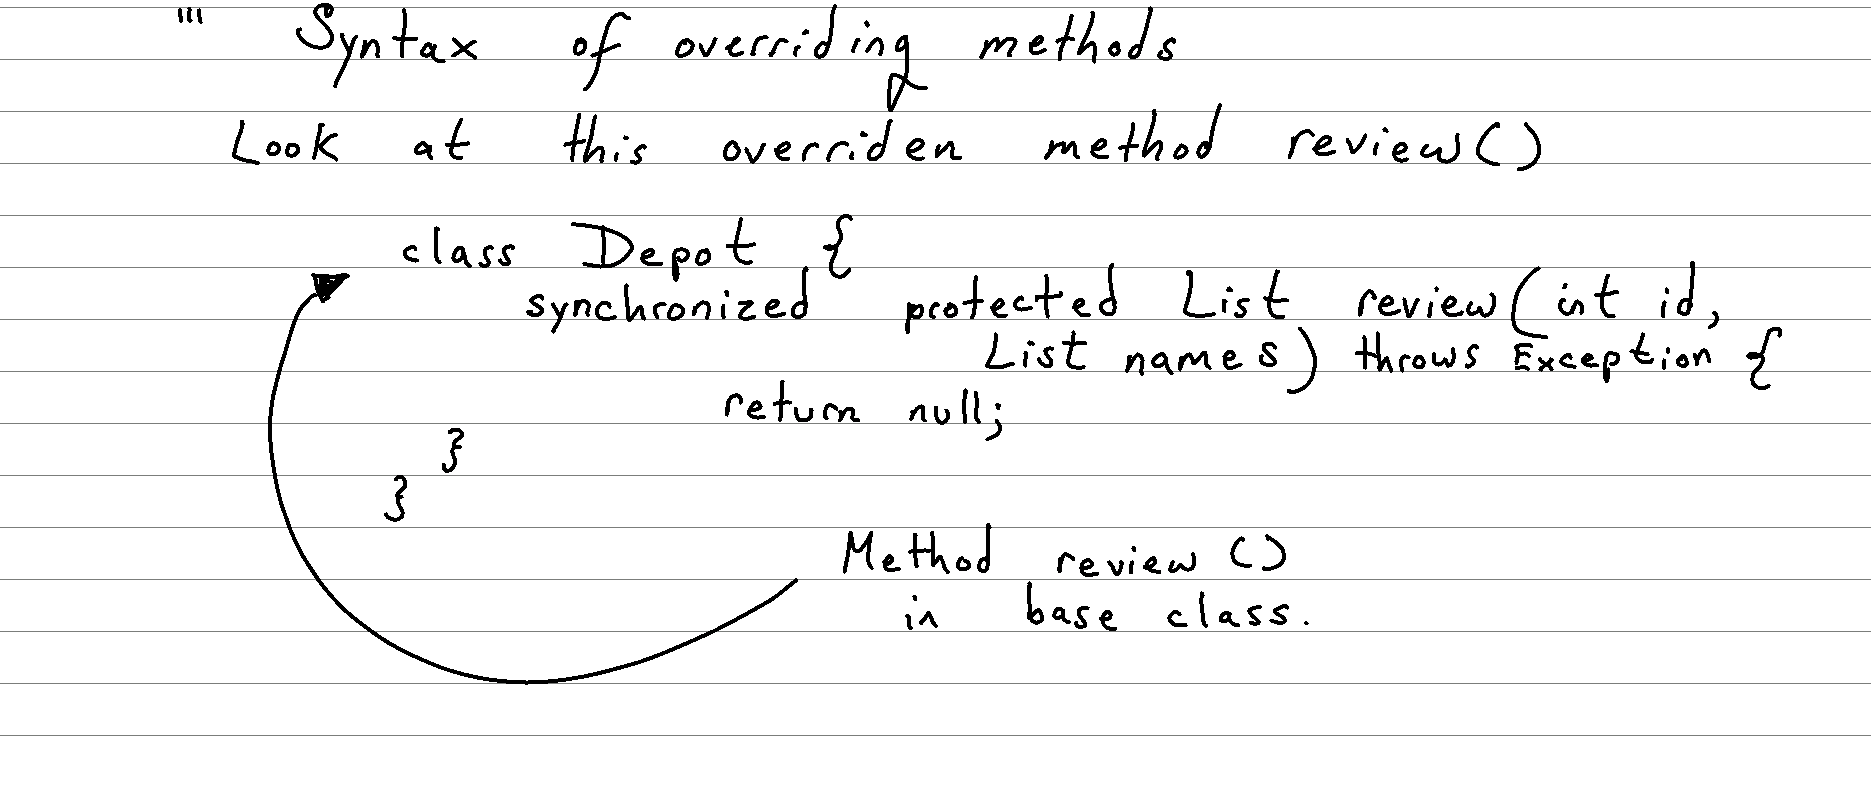 "' Syntax of overriding methods
Look at this overriden method review()
class Depot {
synchronized protected List review(int id,
List names) throws Exception {
return null;
}
}
Method review ()
in base class.